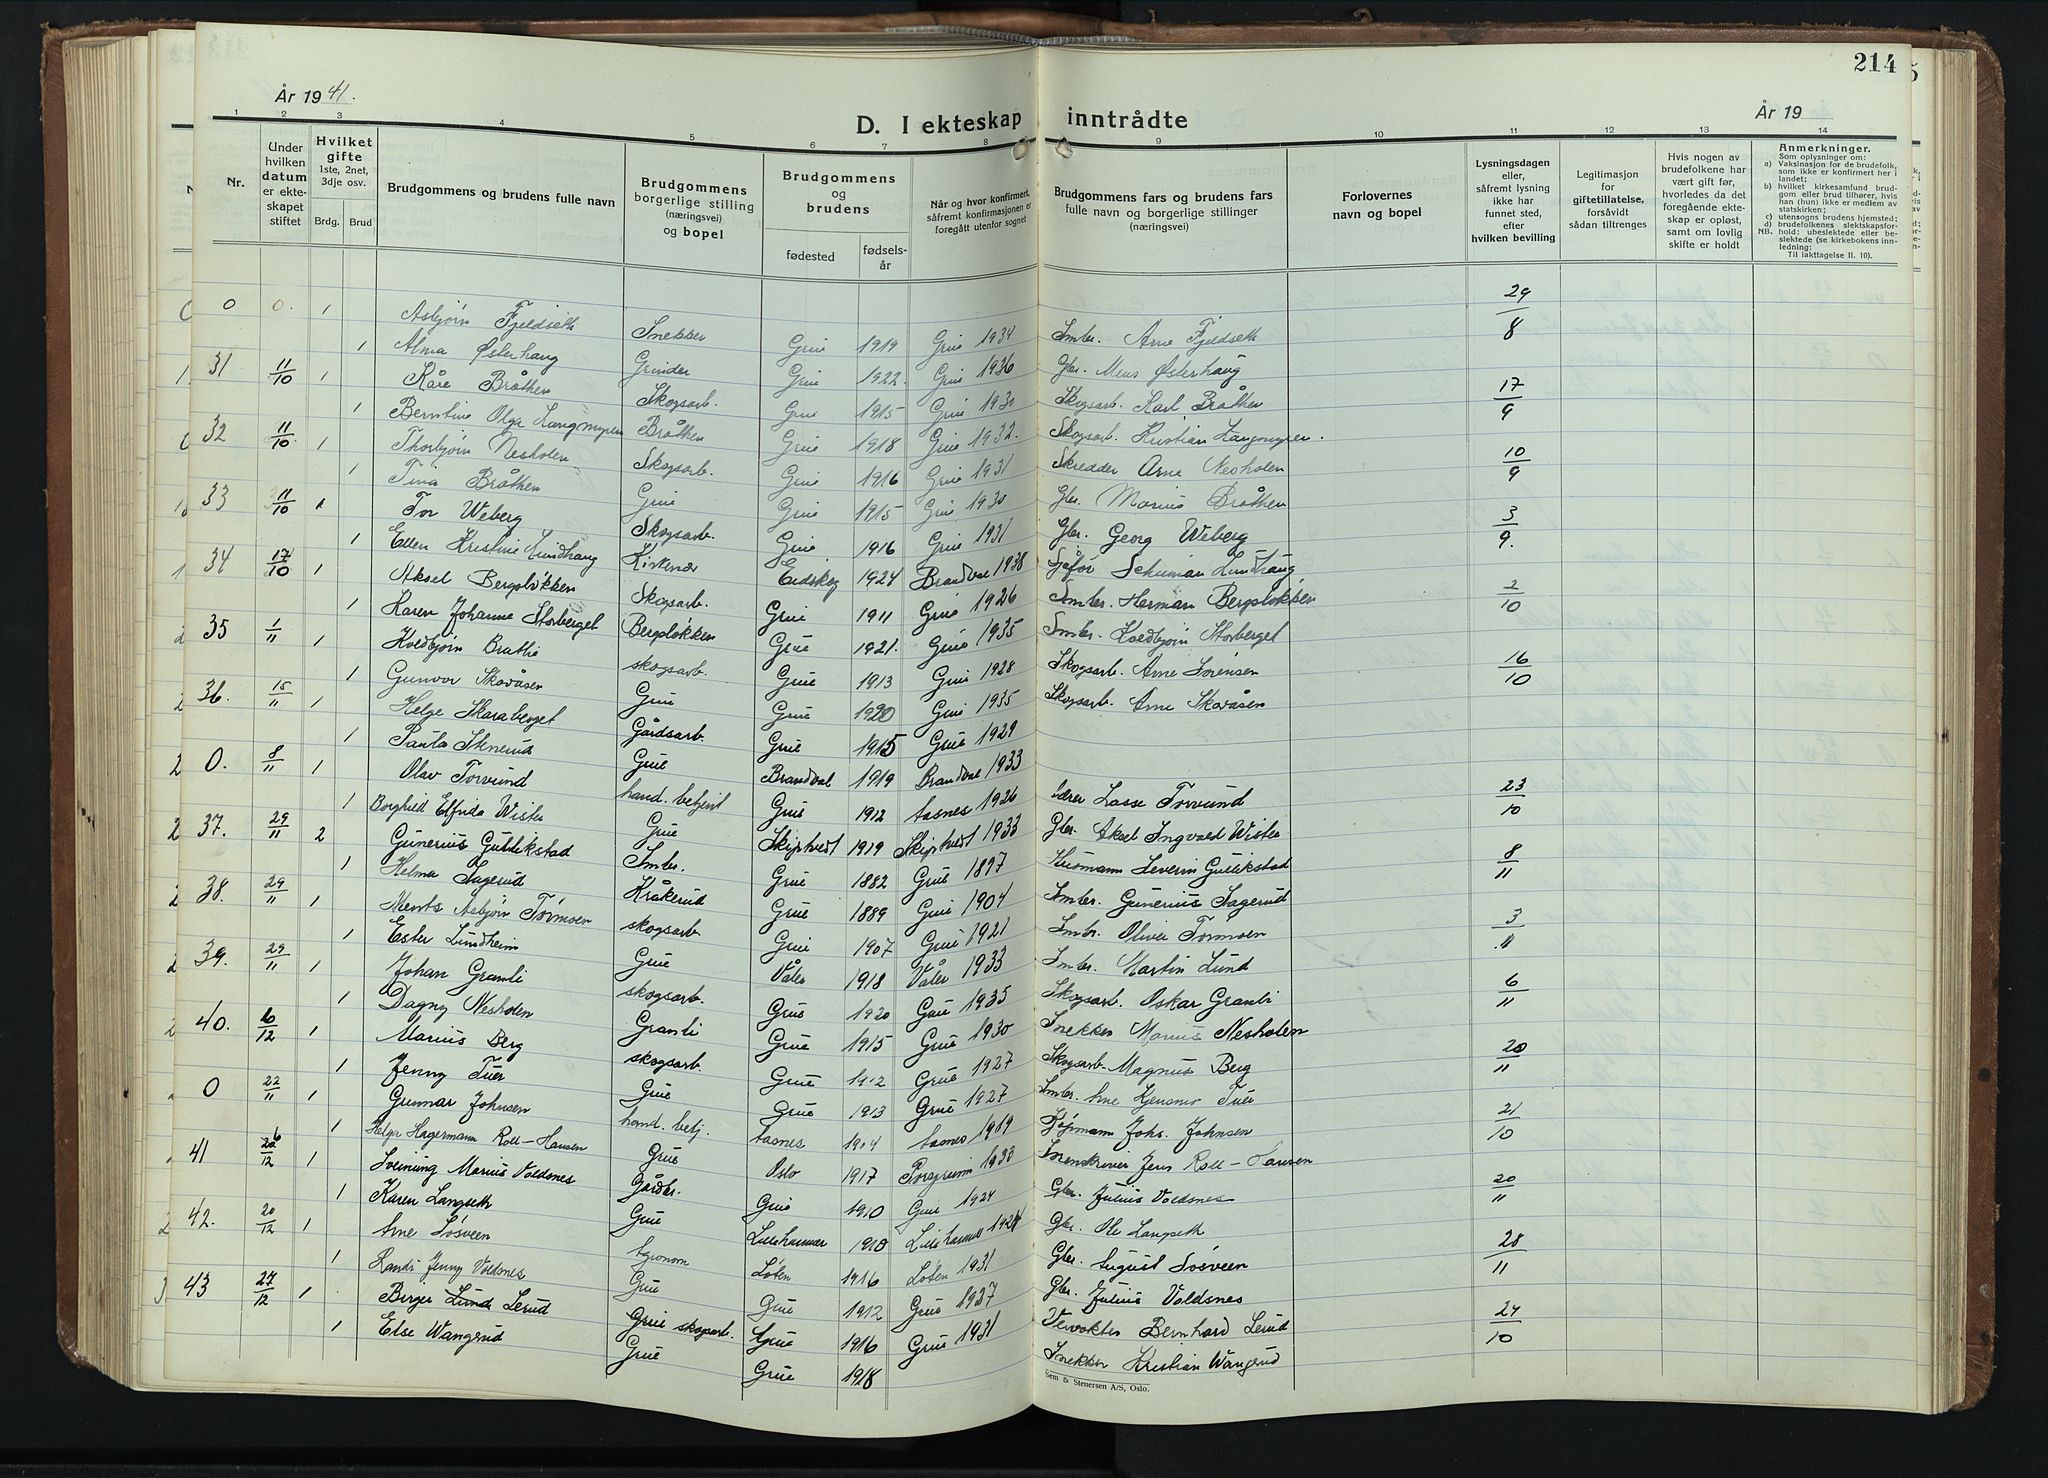 214
År 1941.
D. I ekteskap inntrådte
År 19
1 2 3 4 5 6 7 8 9 10 11 12 13 14
Nr.
Under hvilken datum er ekteskapet stiftet
Hvilket gifte 1ste, 2net, 3dje osv.
Brdg. Brud
Brudgommens og brudens fulle navn
Brudgommens borgerlige stilling (næringsvei) og bopel
Brudgommens og brudens
fødested fødselsår
Når og hvor konfirmert, såfremt konfirmasjonen er foregått utenfor sognet
Brudgommens fars og brudens fars fulle navn og borgerlige stillinger (næringsvei)
Forlovernes navn og bopel
Lysningsdagen eller, såfremt lysning ikke har funnet sted, efter hvilken bevilling
Legitimasjon for giftetillatelse, forsåvidt sådan tiltrenges
Hvis nogen av brudefolkene har vært gift før, hvorledes da det foregående ekteskap er opløst, samt om lovlig skifte er holdt
Anmerkninger.
Som oplysninger om:
a) Vaksinasjon for de brudefolk, som ikke er konfirmert her i landet;
b) hvilket kirkesamfund brudgom eller brud tilhører, hvis han (hun) ikke er medlem av statskirken;
c) utensogns brudens hjemsted;
d) brudefolkenes slektskapsforhold: ubeslektede eller beslektede (se kirkebokens innledning:
NB. Til iakttagelse II. 10).
0 0. 1 Asbjørn Fjeldseth Snekker Grue 1919 Grue 1934 Smbr. Arne Fjeldseth 29/8
1 Alma Østerhaug Grinder Grue 1922. Grue 1936 Gbr. Mens Østerhaug
31 11/10 1 Kåre Bråthen Skogsarb. Grue 1915 Grue 1930 Skogsarb. Karl Bråthen 17/9
1 Berntine Olga Langmyren Bråthen Grue 1918 Grue 1932. Skogsarb. Kristian Langmyren.
32 11/10 1 Thorbjørn Nesholen Skogsarb. Grue 1916 Grue 1931 Skredder Arne Nesholen 10/9
1 Tina Bråthen Grue Grue 1915 Grue 1930 Gbr. Marius Bråthen
33 11/10 1 Tor Weberg Skogsarb. Grue 1916 Grue 1931 Gbr. Georg Weberg 3/9.
1 Ellen Kristine Lundhaug Kirkenær Eidskog 1924 Brandval 1938 Sjåfør Lundhaug
34 17/10 1 Aksel Bergsløkken Skogsarb. Grue 1911 Grue 1926 Smbr. Herman Bergsløkken 2/10
1 Karen Johanne Storberget Bergsløkken Grue 1921. Grue 1935 Smbr. Koldbjørn Storberget
35 1/11 1 Koldbjørn Brathe skogsarb. Grue 1913 Grue 1928 Skogsarb. Arne Sørensen 16/10
1 Gunvor Skavåsen Grue Grue 1920 Grue 1935 Skogsarb. Arne Skavåsen
36. 15/11 1 Helge Skaraberget Gårdsarb. Grue 1915 Grue 1929
1 Paula Stenerud Grue Brandval 1919 Brandval 1933
0. 8/11 1 Olav Torvund hand. betjent Grue 1912 Aasnes 1926 Lærer Lasse Torvund 23/10
1 Borghild Elfrida Wister Grue Skiptvedt 1919 Skiptvedt 1933 Gbr. Aksel Ingvald Wister
37. 29/11 2 Gunerius Gullikstad Smbr. Grue 1882 Grue 1897 Husmann Severin Gullikstad 8/11
1 Helma Sagerud Kråkerud Grue 1889 Grue 1904 Smbr. Gunerius Sagerud
38. 29/11 1 Ments Asbjørn Tormoen skogsarb Grue 1907 Grue 1921 Smbr. Oliver Tormoen 3/11
1 Ester Lundheim Grue Våler 1918 Våler 1933 Smbr. Martin Lund
39. 29/11 1 Johan Granli skogsarb. Grue 1920 Grue 1935 Skogsarb. Oskar Granli 6/11
1 Dagny Nesholen Granli Grue 1915 Grue 1930 Snekker Marius Nesholen
40. 6/12 1 Marius Berg skogsarb. Grue 1912 Grue 1927 Skogsarb. Magnus Berg 20/11
1 Jenny Tuer Grue Grue 1913 Grue 1927 Smbr. Arne Tuer
0 22/11 1 Gunnar Johnsen hand. betj. Aasnes 1904 Aasnes 1919 Kjøpmann Johs. Johnsen 21/10
1 Helga Hagermann Roll-Hansen Grue Oslo 1917 Porsgrunn 1933 Jens Roll-Hansen
41 26/12 1 Sveinung Marius Voldsnes Gårdbr. Grue 1910 Grue 1924 Gbr. Julius Voldsnes 20/11
1 Karen Langseth Grue Lillehammer 1910 Lillehammer 1924 Gbr. Ole Langseth
42. 20/12 1 Arne Løsveen Agronom Løten 1916 Løten 1931 Gbr. August Løsveen 28/11
1 Randi Jenny Voldsnes Grue Grue 1912 Grue 1927 Gbr. Julius Voldsnes
43 27/12 1 Berger Lund Lerud Grue skogsarb. Grue 1916 Grue 1931 Bernhard Lerud 24/10
1 Else Wangerud Grue Grue 1918 Snekker Kristian Wangerud
Sem & Stenersen A/S, Oslo.